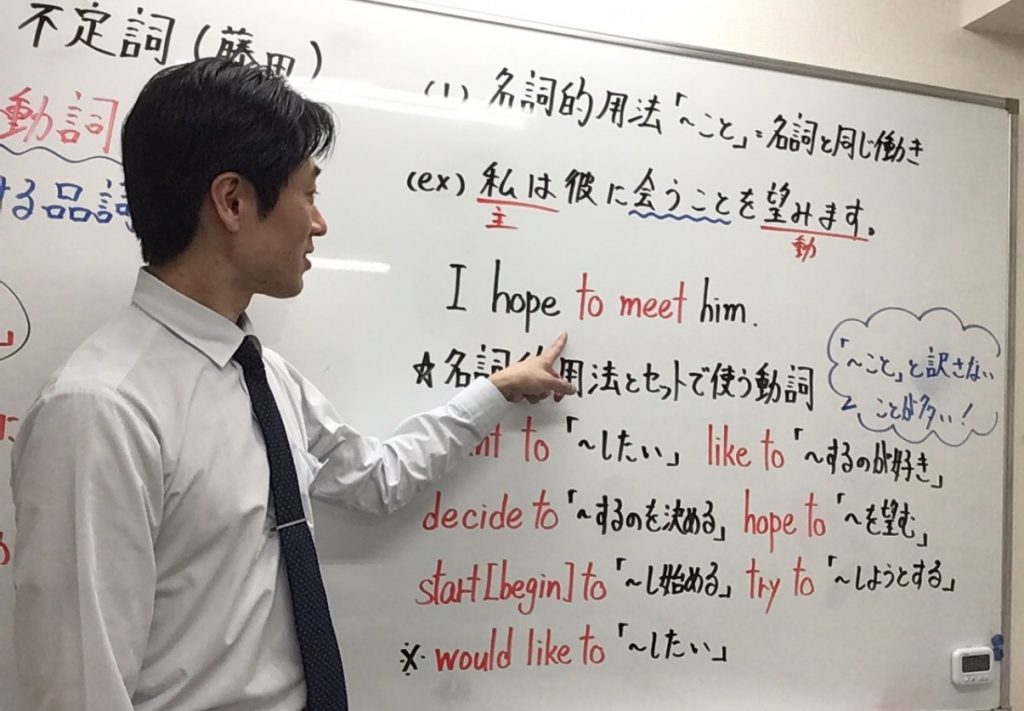 不定詞(藤田)
動詞
する品詞
(1) 名詞的用法「~こと」=名詞と同じ働き
(ex) 私は彼に会うことを望みます。
主 動
I hope to meet him.
☆名詞 用法とセットで使う動詞
「~こと」と訳さない
ことが多い!
to「~したい」 like to「~するのが好き」
decide to「~するのを決める」 hope to「~を望む」
start[begin] to「~し始める」 try to「~しようとする」
※ would like to「~したい」